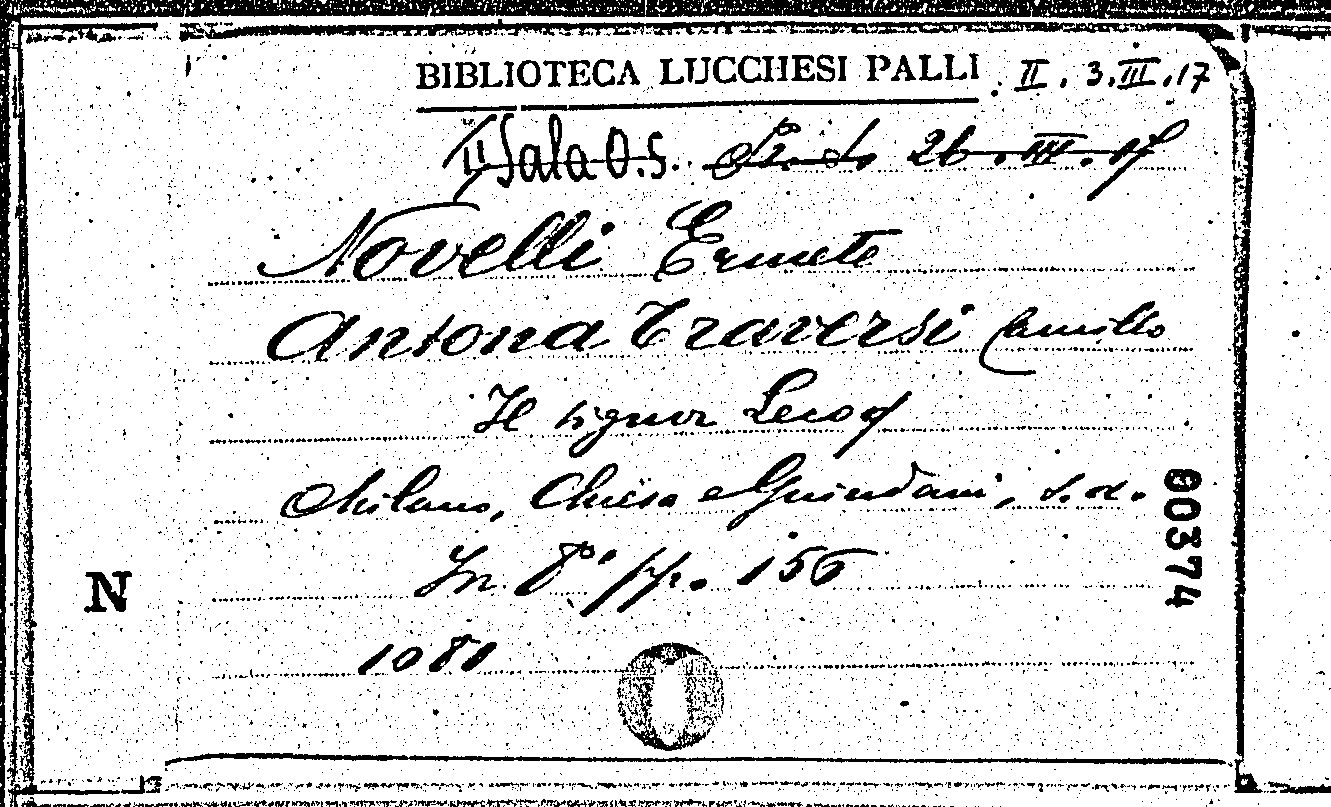 BIBLIOTECA LUCCHESI PALLI . II . 3. III . 17
II Sala O.S. 26 . III . 17
Novelli Ermete
Antona Traversi Camillo
Il signor Lecoq
Milano, Chiesa e Guindani, s.d.
In 8° pp. 156
1080
N
00374